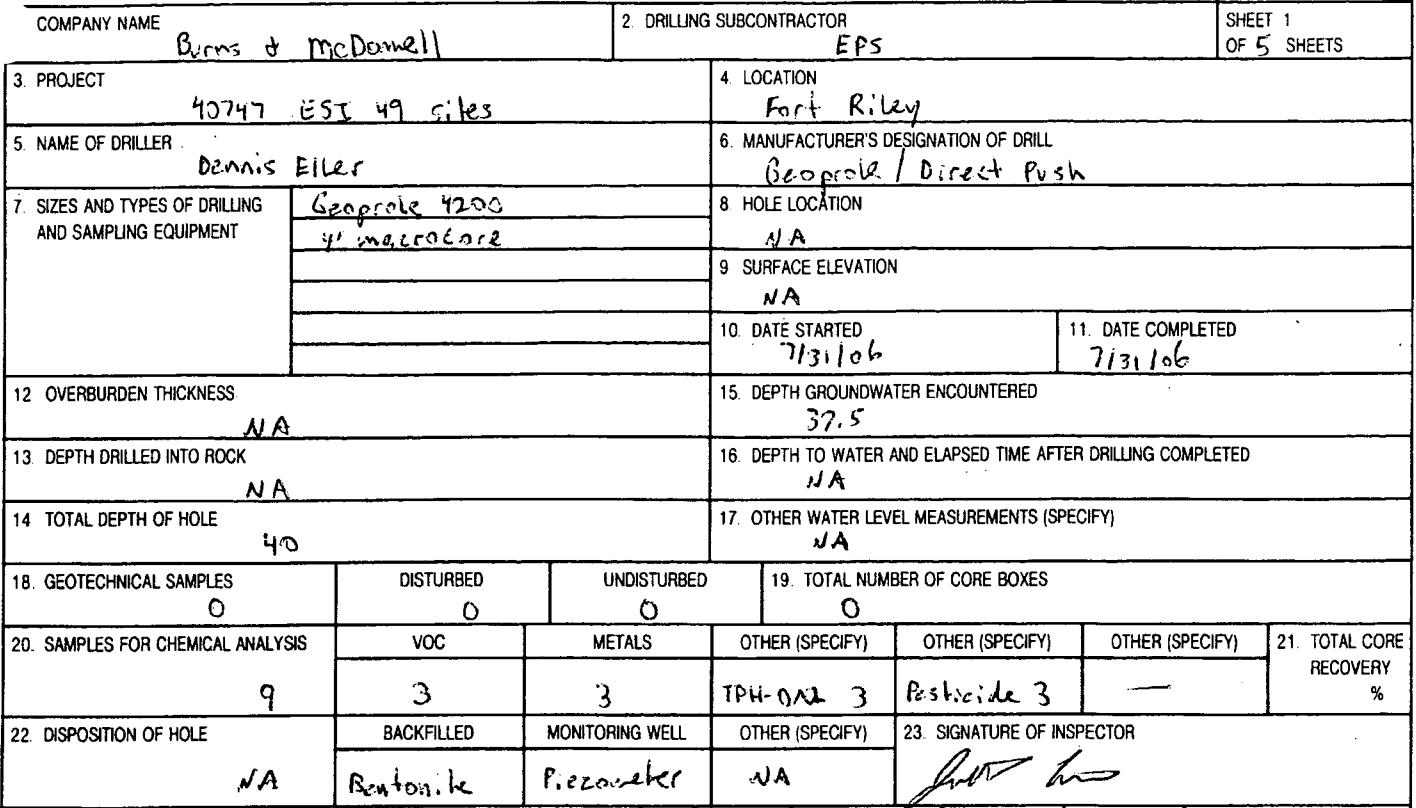 COMPANY NAME
Burns & McDonnell
2. DRILLING SUBCONTRACTOR
EPS
SHEET 1
OF 5 SHEETS
3. PROJECT
40747 ESI 49 sites
4. LOCATION
Fort Riley
5. NAME OF DRILLER
Dennis Eller
6. MANUFACTURER'S DESIGNATION OF DRILL
Geoprobe / Direct Push
7. SIZES AND TYPES OF DRILLING
AND SAMPLING EQUIPMENT
Geoprobe 4200
4' macrocore
8. HOLE LOCATION
NA
9 SURFACE ELEVATION
NA
10. DATE STARTED
7/31/06
11. DATE COMPLETED
7/31/06
12 OVERBURDEN THICKNESS
NA
15. DEPTH GROUNDWATER ENCOUNTERED
37.5
13. DEPTH DRILLED INTO ROCK
NA
16. DEPTH TO WATER AND ELAPSED TIME AFTER DRILLING COMPLETED
NA
14 TOTAL DEPTH OF HOLE
40
17. OTHER WATER LEVEL MEASUREMENTS (SPECIFY)
NA
18. GEOTECHNICAL SAMPLES
0
DISTURBED
0
UNDISTURBED
0
19. TOTAL NUMBER OF CORE BOXES
0
20. SAMPLES FOR CHEMICAL ANALYSIS
9
VOC
3
METALS
3
OTHER (SPECIFY)
TPH- 3
OTHER (SPECIFY)
Pesticide 3
OTHER (SPECIFY)
—
21. TOTAL CORE
RECOVERY
%
22. DISPOSITION OF HOLE
NA
BACKFILLED
Bentonite
MONITORING WELL
Piezometer
OTHER (SPECIFY)
NA
23. SIGNATURE OF INSPECTOR